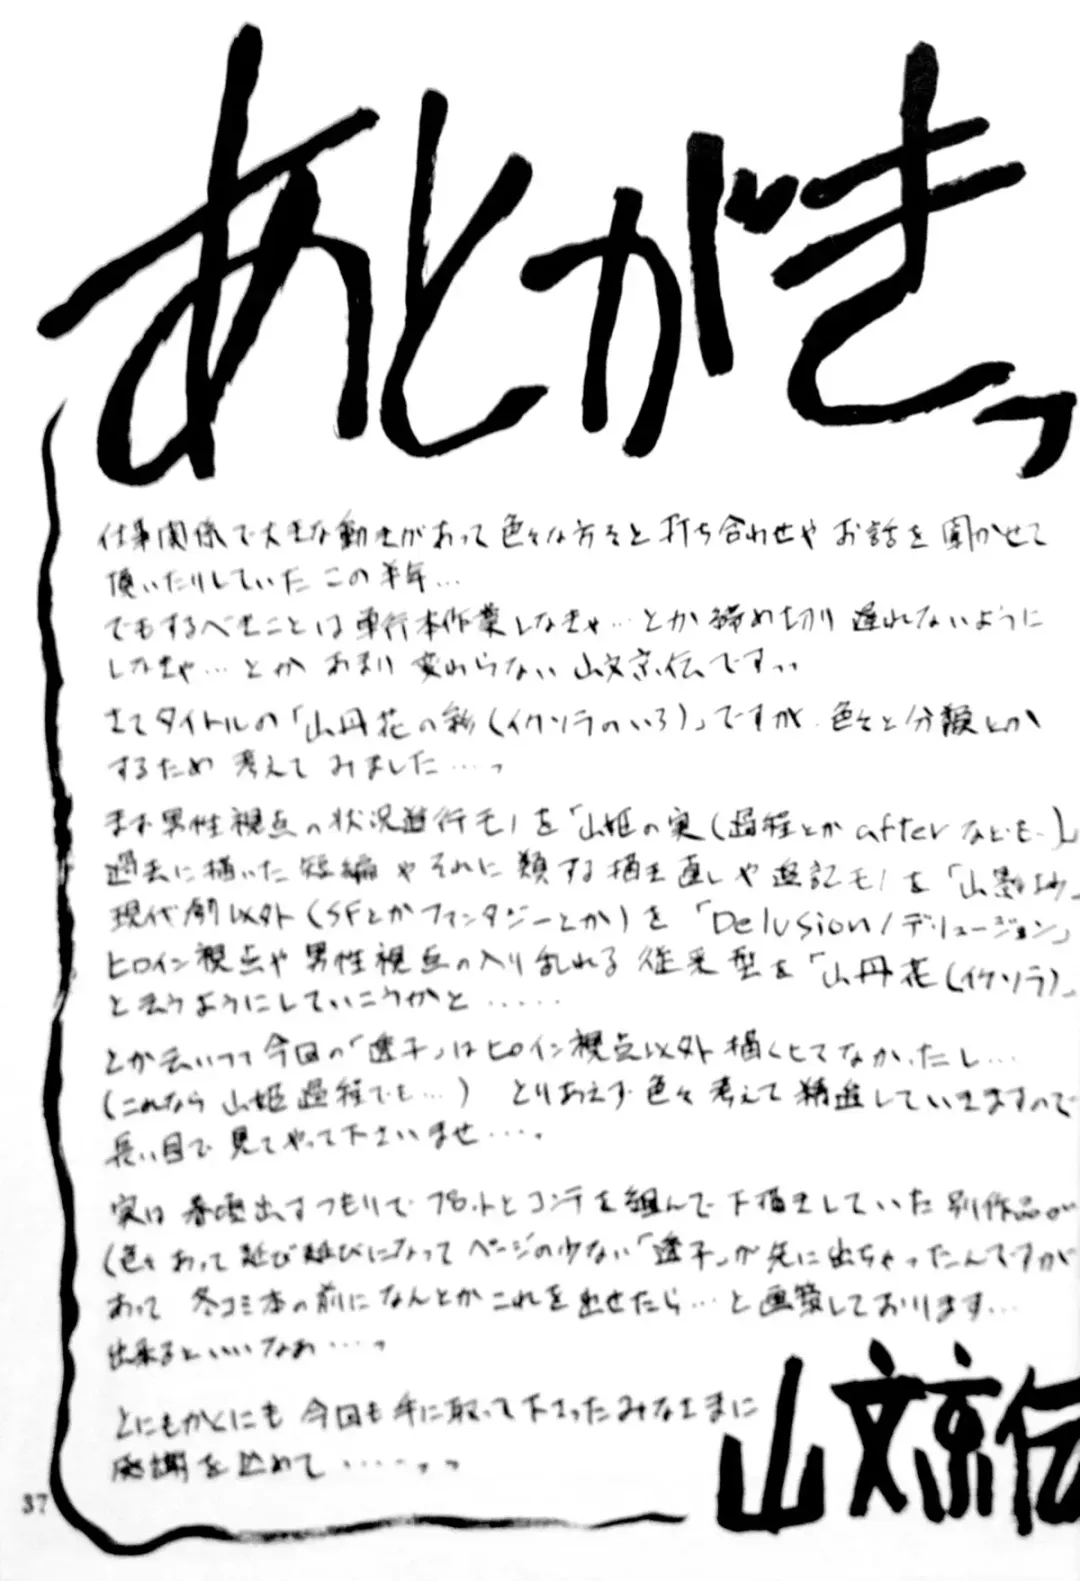 あとがきっ
仕事関係で大きな動きがあって色々な方々と打ち合わせやお話を聞かせて
頂いたりしていたこの半年…
でもするべきことは単行本作業しなきゃ…とか締め切り遅れないように
しなきゃ…とかあまり変わらない山文京伝ですっ
さてタイトルの「山丹花の彩(イケソラのいろ)」ですが、色々と分類とか
するため考えてみました…っ
まず男性視点の状況進行モノを「山姫の実(過程とかafterなども)」
過去に描いた短編やそれに類する描き直しや追記モノを「山
現代劇以外(SFとかファンタジーとか)を「Delusion/デリュージョン」
ヒロイン視点や男性視点の入り乱れる従来型を「山丹花(イケソラ)」
と云うようにしていこうかと……
とか云いつつ今回の「透子」はヒロイン視点以外描くヒマなかったし…
(これなら山姫過程でも…) とりあえず色々考えて精進していきますので
長い目で見てやって下さいませ…。
実は春
出すつもりでプロットとコンテを組んで下描きしていた別作品が
(色々あって延び延びになってページの少ない「透子」が先に出ちゃったんですが
あって 冬コミ本の前になんとかこれを出せたら…と画策しております…
出来るといいなぁ…っ
とにもかくにも今回も手に取って下さったみなさまに
感謝を込めて……っっ
山文京伝
37